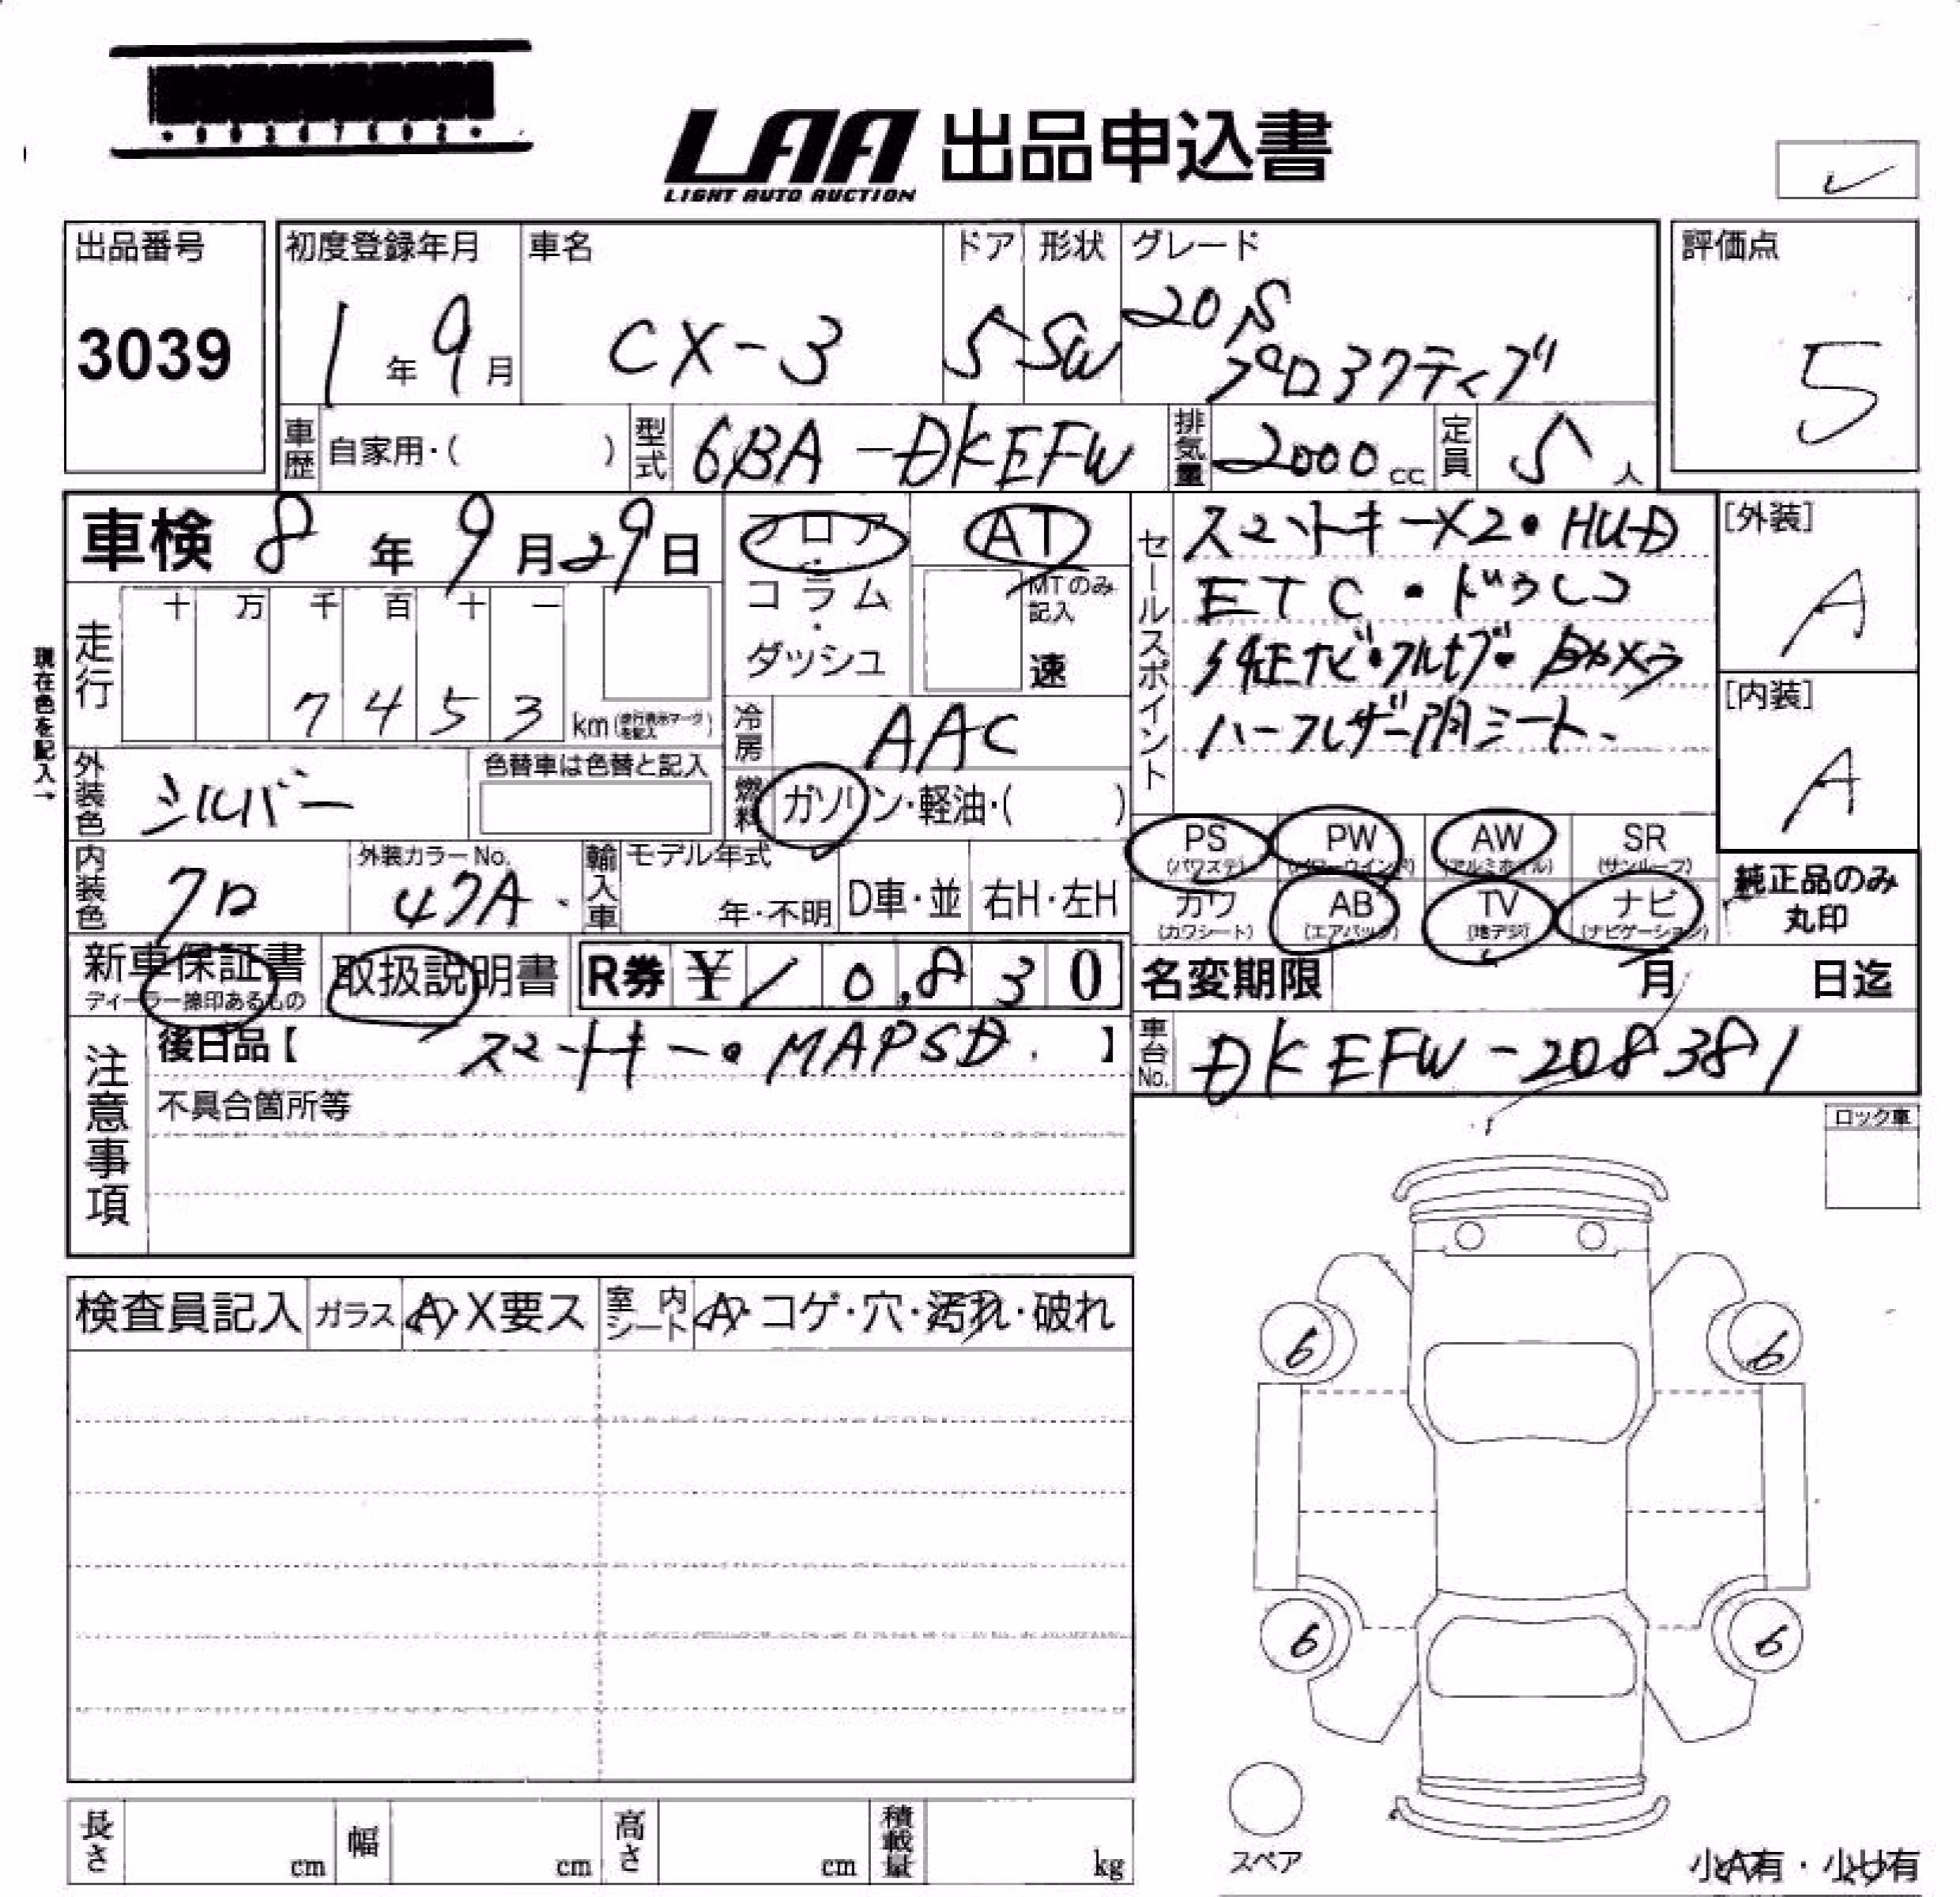 LAA 出品申込書
LIGHT AUTO AUCTION
出品番号
3039
初度登録年月
1年9月
車名
CX-3
ドア
5
形状
SW
グレード
20S
プロアクティブ
評価点
5
車歴
自家用・( )
型式
6BA-DKEFW
排気量
2000cc
定員
5人
車検 8年9月29日
フロア・コラム・ダッシュ
AT
MTのみ記入
速
セールスポイント
スマートキーX2・HUD
ETC・ドラレコ
純正ナビ・フルセグ・Bカメラ
ハーフレザー調シート
[外装]
A
[内装]
A
現在色を記入→
走行
十 万 千 百 十 一
7 4 5 3
km(走行表示マークを記入)
冷房
AAC
外装色
シルバー
色替車は色替と記入
燃料
ガソリン・軽油・( )
内装色
クロ
外装カラーNo.
47A
輸入車
モデル年式
年・不明
D車・並
右H・左H
PS
(パワステ)
PW
(パワーウインド)
AW
(アルミホイル)
SR
(サンルーフ)
カワ
(カワシート)
AB
(エアバック)
TV
(地デジ)
ナビ
(ナビゲーション)
純正品のみ
丸印
新車保証書
ディーラー捺印あるもの
取扱説明書
R券 ¥10,830
名変期限 月 日迄
注意事項
後日品【スマートキー・MAPSD.】
不具合箇所等
車台No.
DKEFW-208381
ロック車
検査員記入
ガラス
A・X要ス
室内シート
A・コゲ・穴・汚れ・破れ
6
6
6
6
スペア
長さ cm
幅 cm
高さ cm
積載量 kg
小A有・小U有